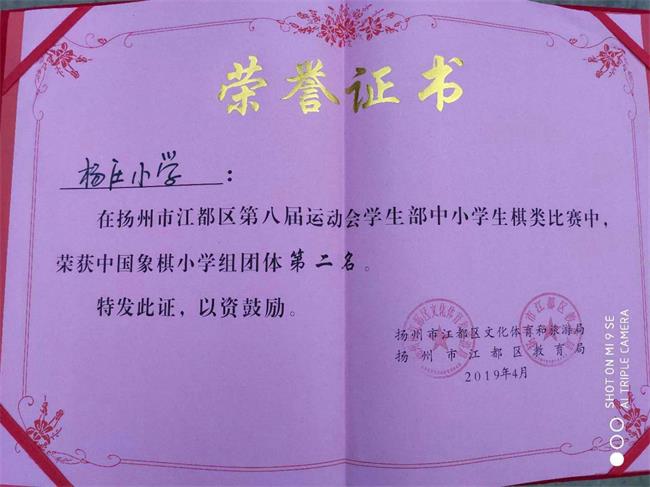 荣誉证书
杨庄小学：
在扬州市江都区第八届运动会学生部中小学生棋类比赛中，
荣获中国象棋小学组团体第二名。
特发此证，以资鼓励。
扬州市江都区文化体育和旅游局
扬州市江都区教育局
2019年4月
SHOT ON MI 9 SE
AI TRIPLE CAMERA